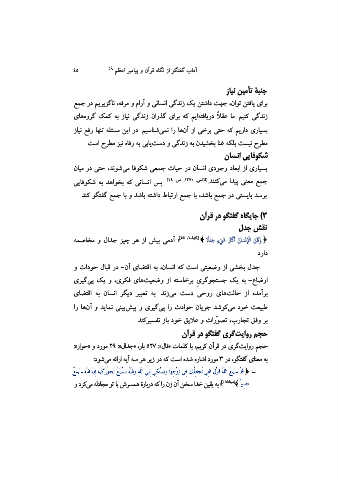 آداب گفتگو از نگاه قرآن و پیامبر اعظم ۴۵
جنبهٔ تأمین نیاز
برای یافتن توان، جهت داشتن یک زندگی انسانی و آرام و مرفه، ناگزیریم در جمع
زندگی کنیم. ما عقلاً دریافته‌ایم که برای گذران زندگی نیاز به کمک گروه‌های
بسیاری داریم که حتی برخی از آن‌ها را نمی‌شناسیم. در این مسئله تنها رفع نیاز
مطرح نیست بلکه غنا بخشیدن به زندگی و دست‌یابی به رفاه نیز مطرح است.
شکوفایی انسان
بسیاری از ابعاد وجودی انسان در حیات جمعی شکوفا می‌شوند، حتی در میان
جمع معنی پیدا می‌کنند پس انسانی که بخواهد به شکوفایی
برسد بایستی در جمع باشد، با جمع ارتباط داشته باشد و با جمع گفتگو کند.
۳) جایگاه گفتگو در قرآن
نقش جدل
﴿ وَكَانَ الْإِنْسَانُ أَكْثَرَ شَيْءٍ جَدَلًا ﴾ آدمی بیش از هر چیز جدال و مخاصمه
دارد
جدل بخشی از وضعیتی است که انسان، به اقتضای آن- در قبال حوادث و
اوضاع- به یک جستجوگری برخاسته از وضعیت‌های فکری، و یک پی‌گیری
برآمده از حالت‌های روحی دست می‌زند. به تعبیر دیگر انسان به اقتضای
طبیعت خود می‌کوشد جریان حوادث را پی‌گیری و پیش‌بینی نماید و آن‌ها را
بر وفق تجارب، تصوّرات و علایق خود باز تفسیر کند.
حجم روایت‌گری گفتگو در قرآن
حجم روایت‌گری در قرآن کریم، با کلمات «قال» ۵۲۷ بار، «جدال» ۲۹ مورد و «حوار»
به معنای گفتگو، در ۳ مورد اشاره شده است که در زیر هر سه آیه ارائه می‌شود:
به یقین خدا سخن آن زن را که دربارهٔ همسرش با تو مجادله می‌کرد و